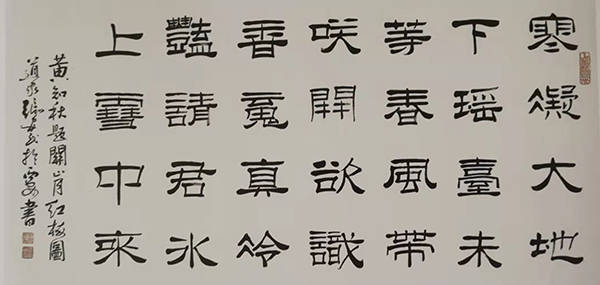 寒凝大地
下瑶臺未
等春風帶
咲開欲識
香魂真冷
豔請君冰
上雪中來
黄知秋題關山月红梅圖
書